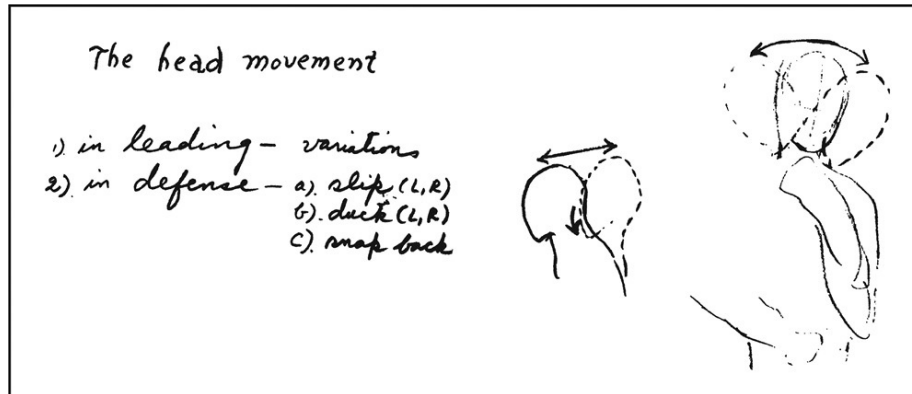 The head movement
1). in leading – variations
2). in defense – a). slip (L,R)
b). duck (L,R)
c). snap back